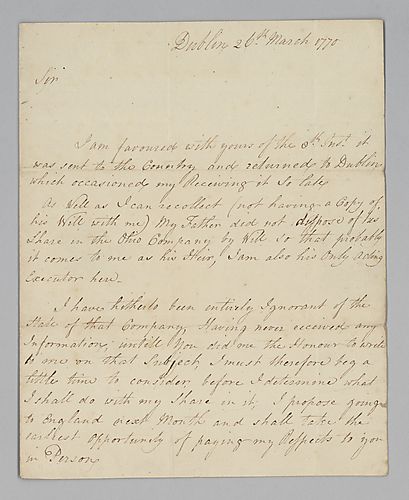 Dublin 26th March 1770
Sir
I am favoured with yours of the 8th Inst. it
was sent to the Country and returned to Dublin
which occasioned my Receiving it So late
As Well as I can recollect (not having a Copy of
his Will with me) My Father did not dispose of his
Share in the Ohio Company by Will So that probably
it comes to me as his Heir, I am also his Only Acting
Executor here.
I have hitherto been entirely Ignorant of the
State of that Company, Having never received any
Information, untill You did me the Honour to write
to me on that Subject, I must therefore beg a
little time to consider, before I determine what
I shall do with my Share in it, I propose going
to England next Month and shall take the
earliest Opportunity of paying my Respects to you
in Person